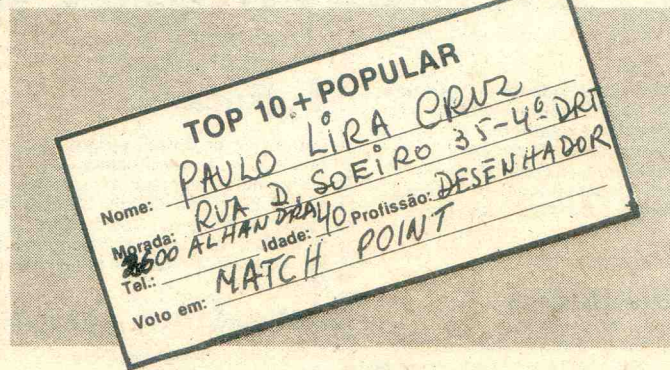 TOP 10 + POPULAR
Nome: PAULO LIRA CRUZ
Morada: RUA D. SOEIRO 35-4º DRT
2600 ALHANDRA Idade: 40 Profissão: DESENHADOR
Tel.:
Voto em: MATCH POINT